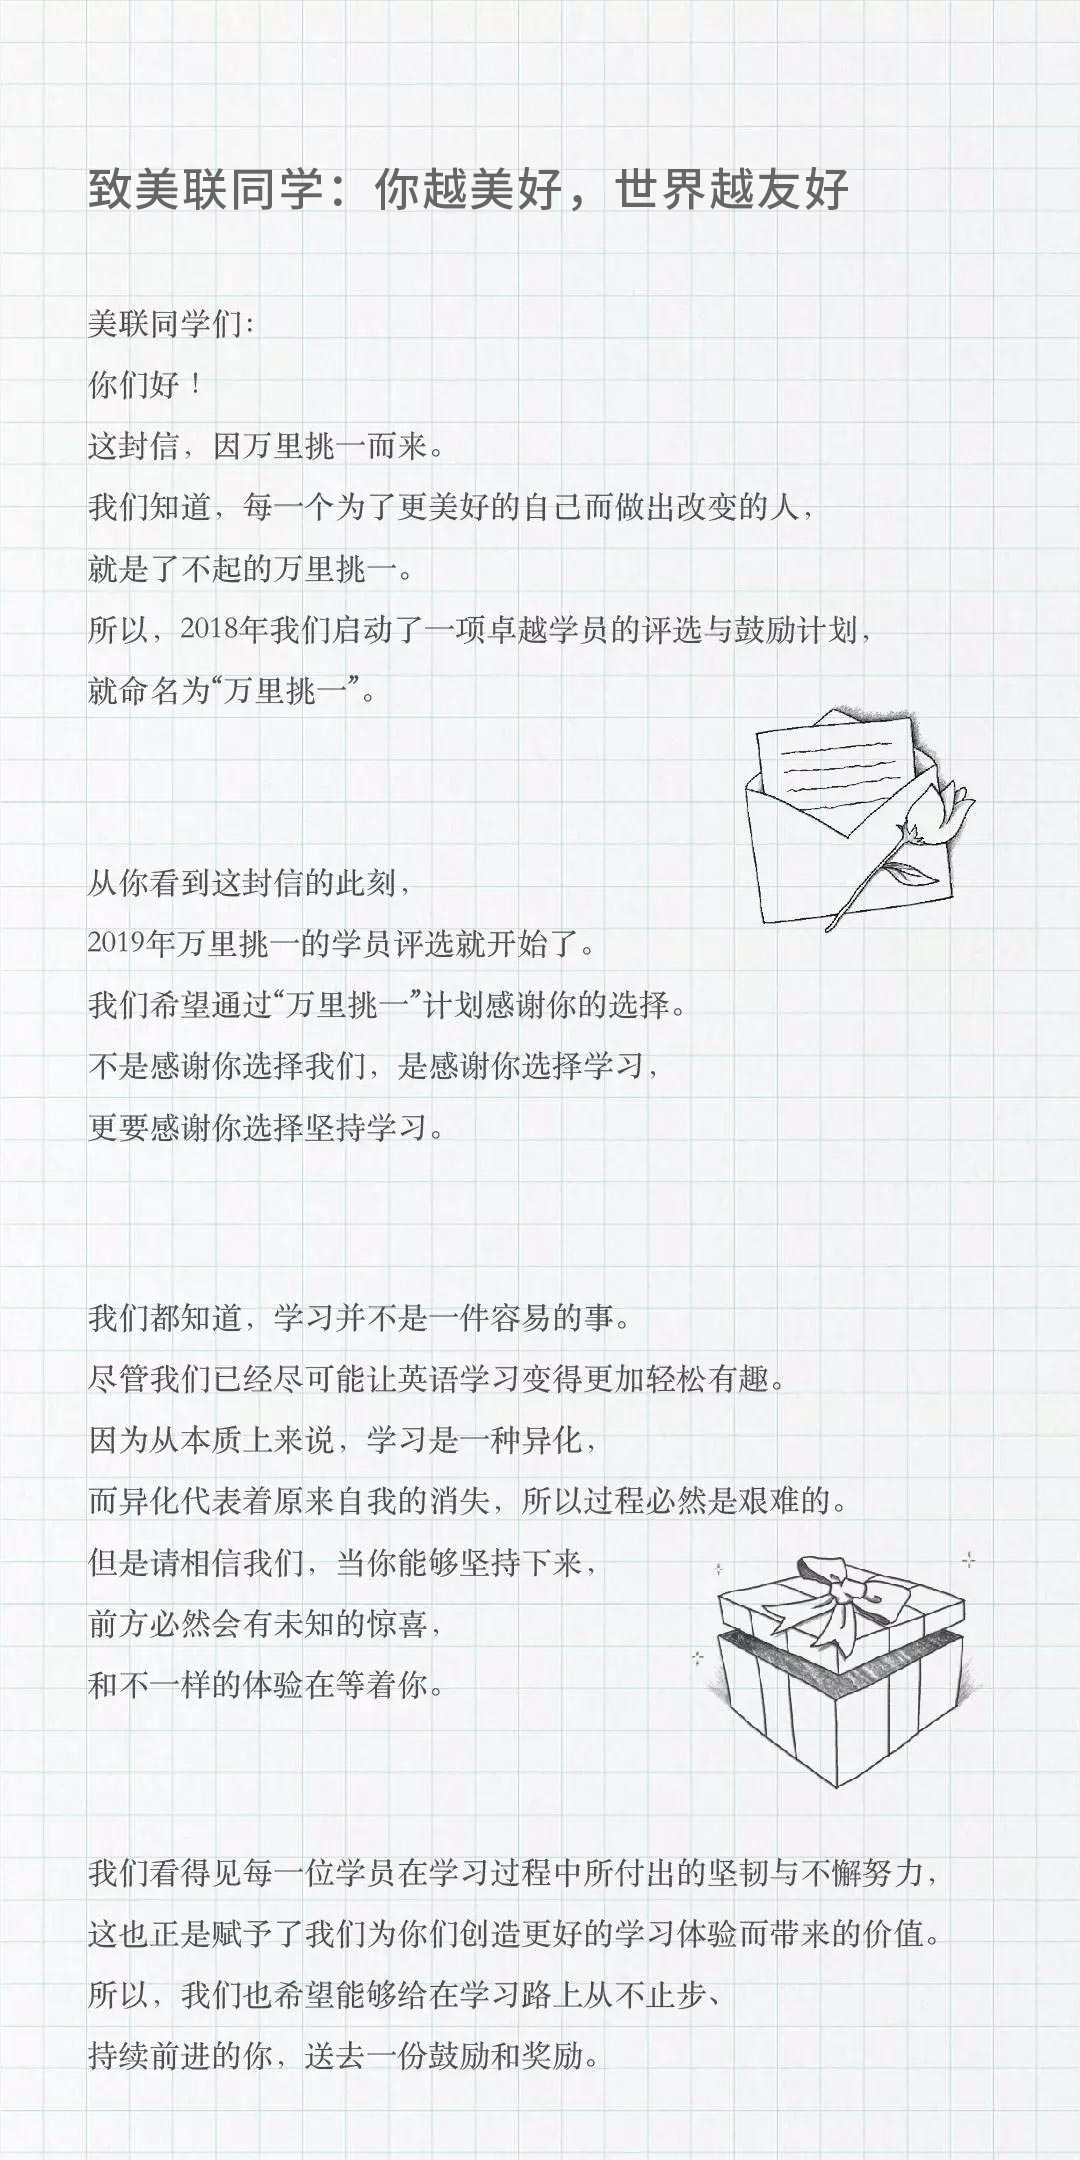 致美联同学：你越美好，世界越友好
美联同学们：
你们好！
这封信，因万里挑一而来。
我们知道，每一个为了更美好的自己而做出改变的人，
就是了不起的万里挑一。
所以，2018年我们启动了一项卓越学员的评选与鼓励计划，
就命名为“万里挑一”。
从你看到这封信的此刻，
2019年万里挑一的学员评选就开始了。
我们希望通过“万里挑一”计划感谢你的选择。
不是感谢你选择我们，是感谢你选择学习，
更要感谢你选择坚持学习。
我们都知道，学习并不是一件容易的事。
尽管我们已经尽可能让英语学习变得更加轻松有趣。
因为从本质上来说，学习是一种异化，
而异化代表着原来自我的消失，所以过程必然是艰难的。
但是请相信我们，当你能够坚持下来，
前方必然会有未知的惊喜，
和不一样的体验在等着你。
我们看得见每一位学员在学习过程中所付出的坚韧与不懈努力，
这也正是赋予了我们为你们创造更好的学习体验而带来的价值。
所以，我们也希望能够给在学习路上从不止步、
持续前进的你，送去一份鼓励和奖励。